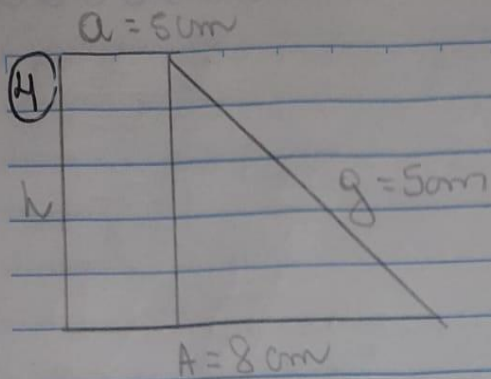 a = 5 cm
4
h
g = 5cm
A = 8 cm